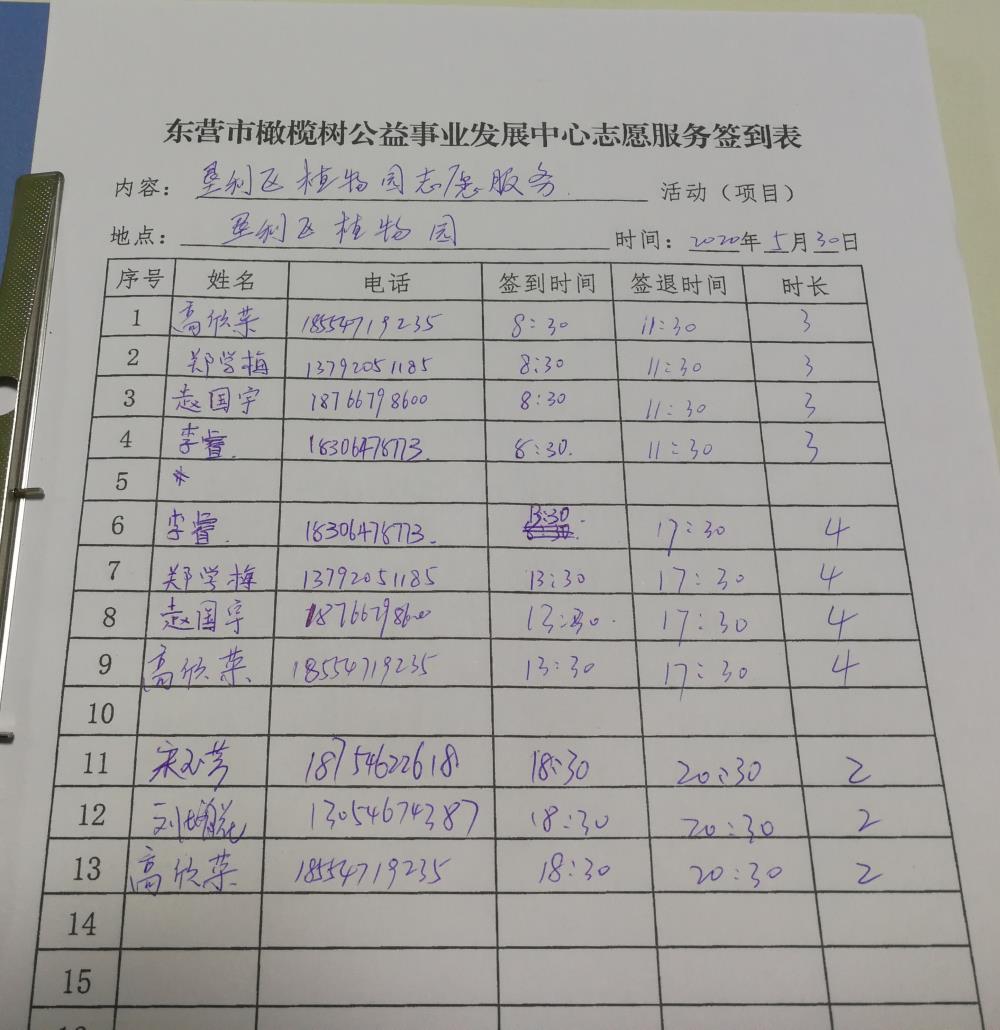 东营市橄榄树公益事业发展中心志愿服务签到表
内容：垦利区植物园志愿服务 活动（项目）
地点：垦利区植物园 时间：2020年5月30日
序号 姓名 电话 签到时间 签退时间 时长
1 高欣荣 18554719235 8:30 11:30 3
2 郑学梅 13792051185 8:30 11:30 3
3 赵国宇 18766798600 8:30 11:30 3
4 李睿 18306478773 8:30 11:30 3
5
6 李睿 18306478773 13:30 17:30 4
7 郑学梅 13792051185 13:30 17:30 4
8 赵国宇 18766798600 13:30 17:30 4
9 高欣荣 18554719235 13:30 17:30 4
10
11 宋玉芳 18754622618 18:30 20:30 2
12 13054674387 18:30 20:30 2
13 高欣荣 18554719235 18:30 20:30 2
14
15